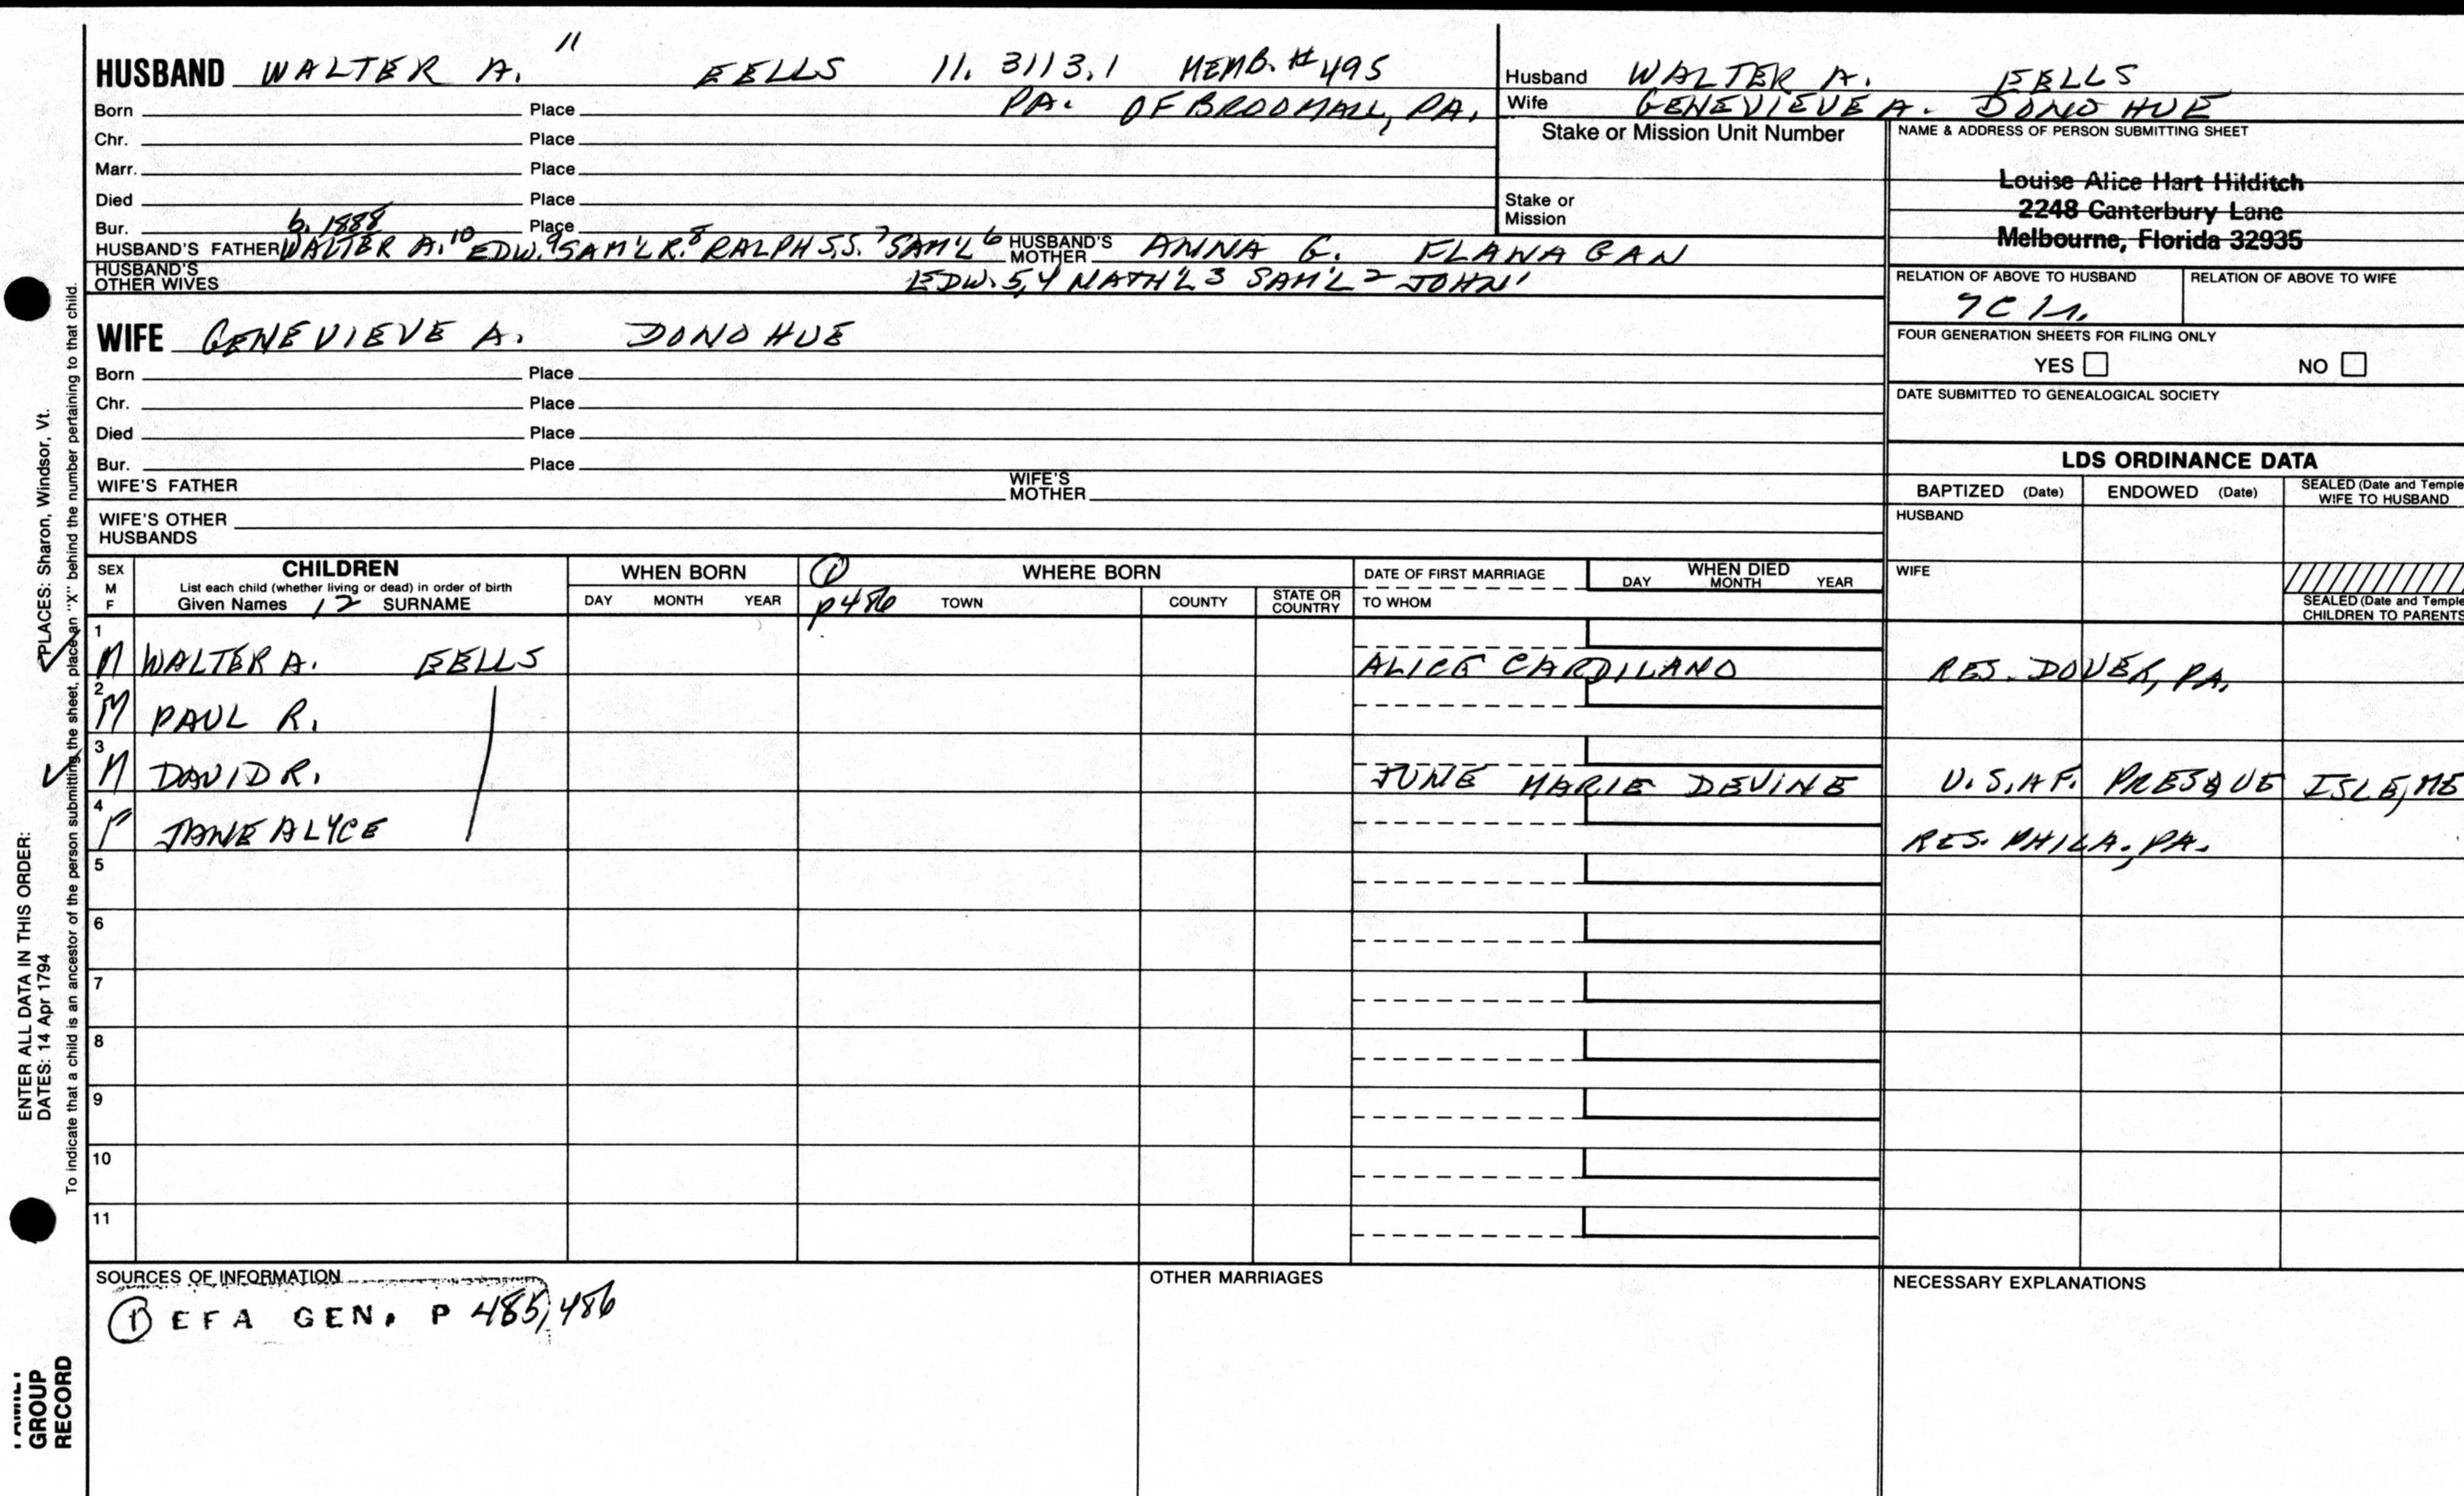 HUSBAND WALTER A. 11 EELLS 11. 3113.1 MEMB. #495
Born Place PA. OF BROOMALL, PA.
Chr. Place
Marr. Place
Died Place
Bur. b. 1888 Place
HUSBAND'S FATHER WALTER A.10 EDW.9 SAM'L R.8 RALPH S.S.7 SAM'L6 HUSBAND'S MOTHER ANNA G. FLANAGAN
HUSBAND'S OTHER WIVES EDW. 5,4 NATH'L 3 SAM'L 2 JOHN1
Husband WALTER A. EELLS
Wife GENEVIEVE A. DONOHUE
Stake or Mission Unit Number
Stake or Mission
NAME & ADDRESS OF PERSON SUBMITTING SHEET
Louise Alice Hart Hilditch
2248 Canterbury Lane
Melbourne, Florida 32935
RELATION OF ABOVE TO HUSBAND
RELATION OF ABOVE TO WIFE
FOUR GENERATION SHEETS FOR FILING ONLY
YES NO
DATE SUBMITTED TO GENEALOGICAL SOCIETY
WIFE GENEVIEVE A. DONOHUE
Born Place
Chr. Place
Died Place
Bur. Place
WIFE'S FATHER WIFE'S MOTHER
WIFE'S OTHER HUSBANDS
LDS ORDINANCE DATA
BAPTIZED (Date) ENDOWED (Date) SEALED (Date and Temple
WIFE TO HUSBAND
HUSBAND
WIFE
SEALED (Date and Temple
CHILDREN TO PARENTS
SEX M F
CHILDREN
List each child (whether living or dead) in order of birth
Given Names 12 SURNAME
WHEN BORN
DAY MONTH YEAR
1 WHERE BORN
p486 TOWN COUNTY STATE OR COUNTRY
DATE OF FIRST MARRIAGE
TO WHOM
WHEN DIED
DAY MONTH YEAR
1 M WALTER A. EELLS ALICE CARDILANO RES. DOVER, PA.
2 M PAUL R.
3 M DAVID R. JUNE MARIE DEVINE U.S.AF. PRESQUE ISLE, ME
4 F JANE ALYCE RES. PHILA., PA.
5
6
7
8
9
10
11
SOURCES OF INFORMATION
1 EFA GEN. P 485, 486
OTHER MARRIAGES
NECESSARY EXPLANATIONS
ENTER ALL DATA IN THIS ORDER:
DATES: 14 Apr 1794
PLACES: Sharon, Windsor, Vt.
To indicate that a child is an ancestor of the person submitting the sheet, place an "X" behind the number pertaining to that child.
GROUP
RECORD